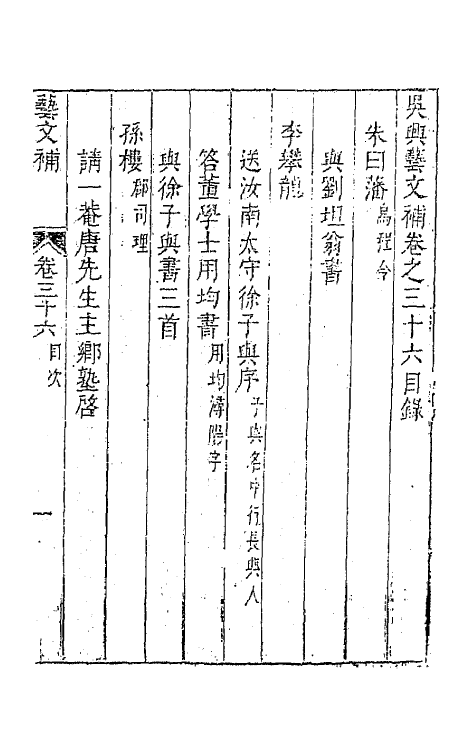 吳興藝文補卷之三十六目錄
朱曰藩烏程令
與劉坦翁書
李攀龍
送汝南太守徐子與序子與名中行長興人
答董學士用均書用均潯陽字
與徐子與書三首
孫樓郡司理
請一菴唐先生主鄉塾啓
藝文補 卷三十六目次 一